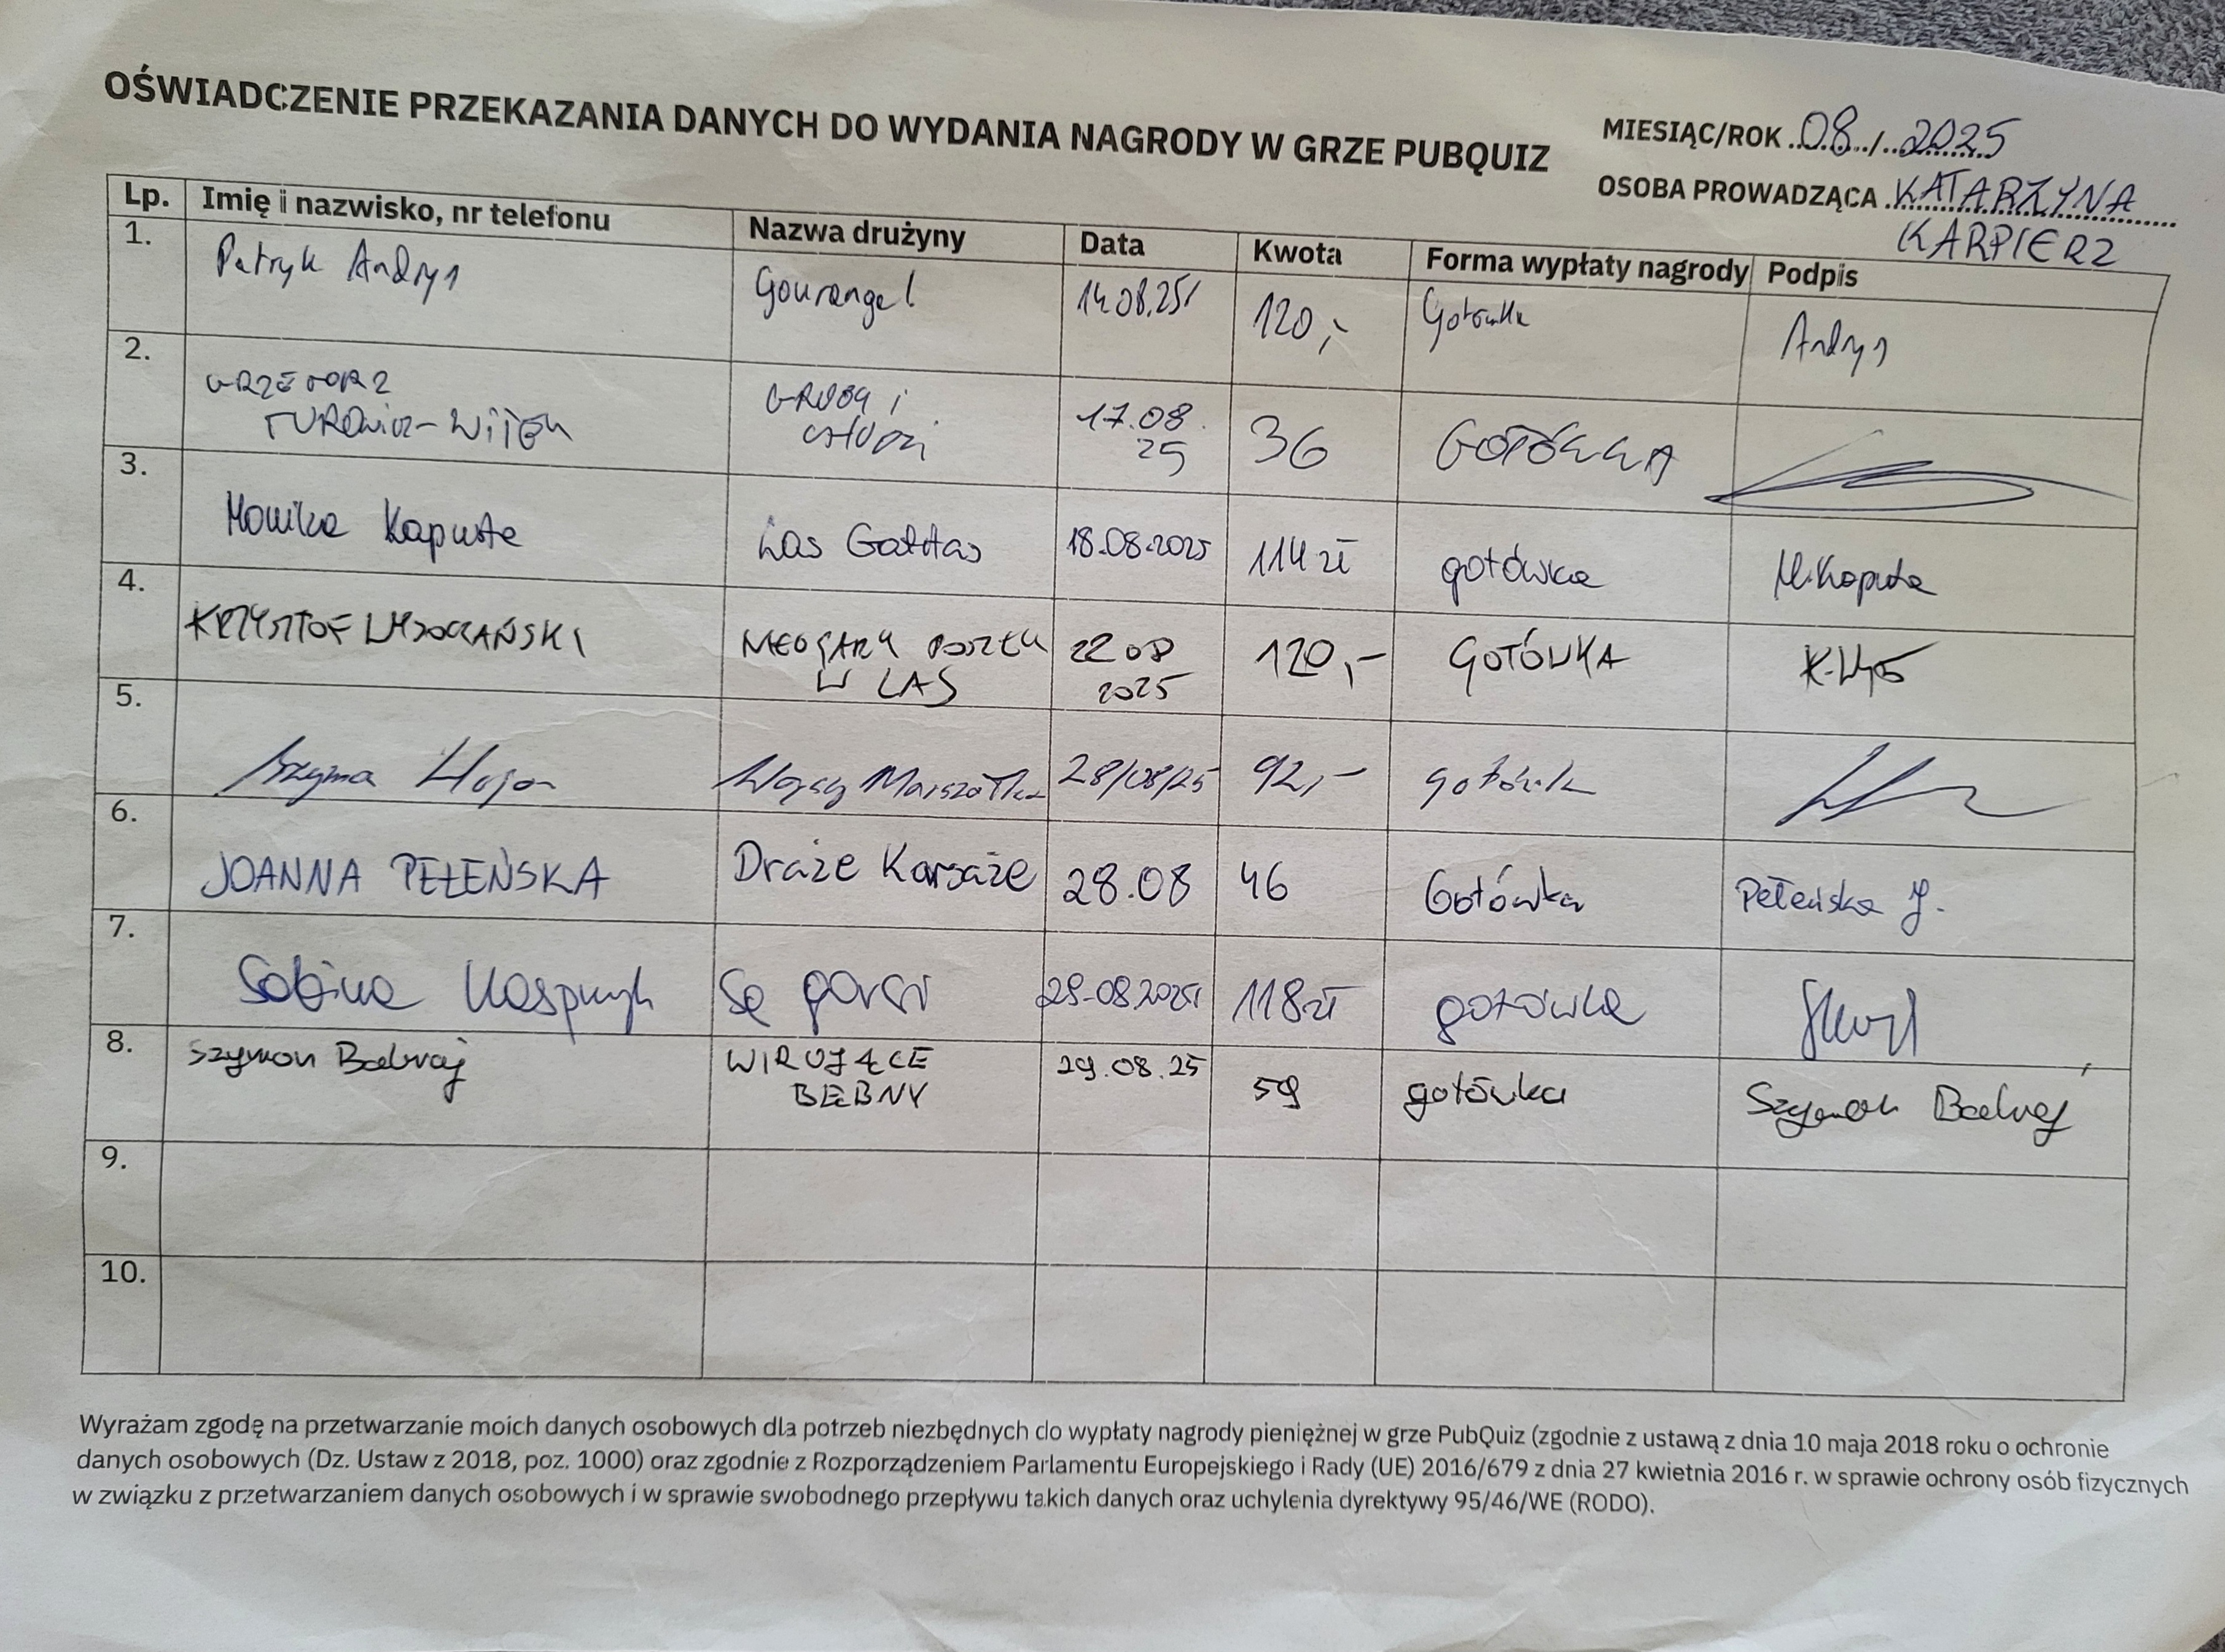 OŚWIADCZENIE PRZEKAZANIA DANYCH DO WYDANIA NAGRODY W GRZE PUBQUIZ
MIESIĄC/ROK 08 / 2025
OSOBA PROWADZĄCA KATARZYNA
KARPIERZ
Lp. Imię i nazwisko, nr telefonu Nazwa drużyny Data Kwota Forma wypłaty nagrody Podpis
1. Patryk Andrys Gouranga! 14.08.25r 120,- Gotówka Andrys
2. GRZEGORZ GRUBY i 17.08. 36 GOTÓWKA
TUROWICZ-WITEK CHUDZI 25
3. Monika Kapusta Las Gattas 18.08.2025 114 zł gotówka M.Kapusta
4. KRZYSZTOF WYSOCZAŃSKI NIEOGARY POSZŁY 22 08 120,- GOTÓWKA K.Wys
W LAS 2025
5. Szyma 28/08/25 92,- gotówk
6. JOANNA PEŁEŃSKA Draże Korsarze 28.08 46 Gotówka Pełeńska J.
7. Sabina Kasprzyk Są gorsi 28.08.2025r 118 zł gotówka
8. Szymon WIRUJĄCE 29.08.25 59 gotówka Szymon
BĘBNY
9.
10.
Wyrażam zgodę na przetwarzanie moich danych osobowych dla potrzeb niezbędnych do wypłaty nagrody pieniężnej w grze PubQuiz (zgodnie z ustawą z dnia 10 maja 2018 roku o ochronie
danych osobowych (Dz. Ustaw z 2018, poz. 1000) oraz zgodnie z Rozporządzeniem Parlamentu Europejskiego i Rady (UE) 2016/679 z dnia 27 kwietnia 2016 r. w sprawie ochrony osób fizycznych
w związku z przetwarzaniem danych osobowych i w sprawie swobodnego przepływu takich danych oraz uchylenia dyrektywy 95/46/WE (RODO).